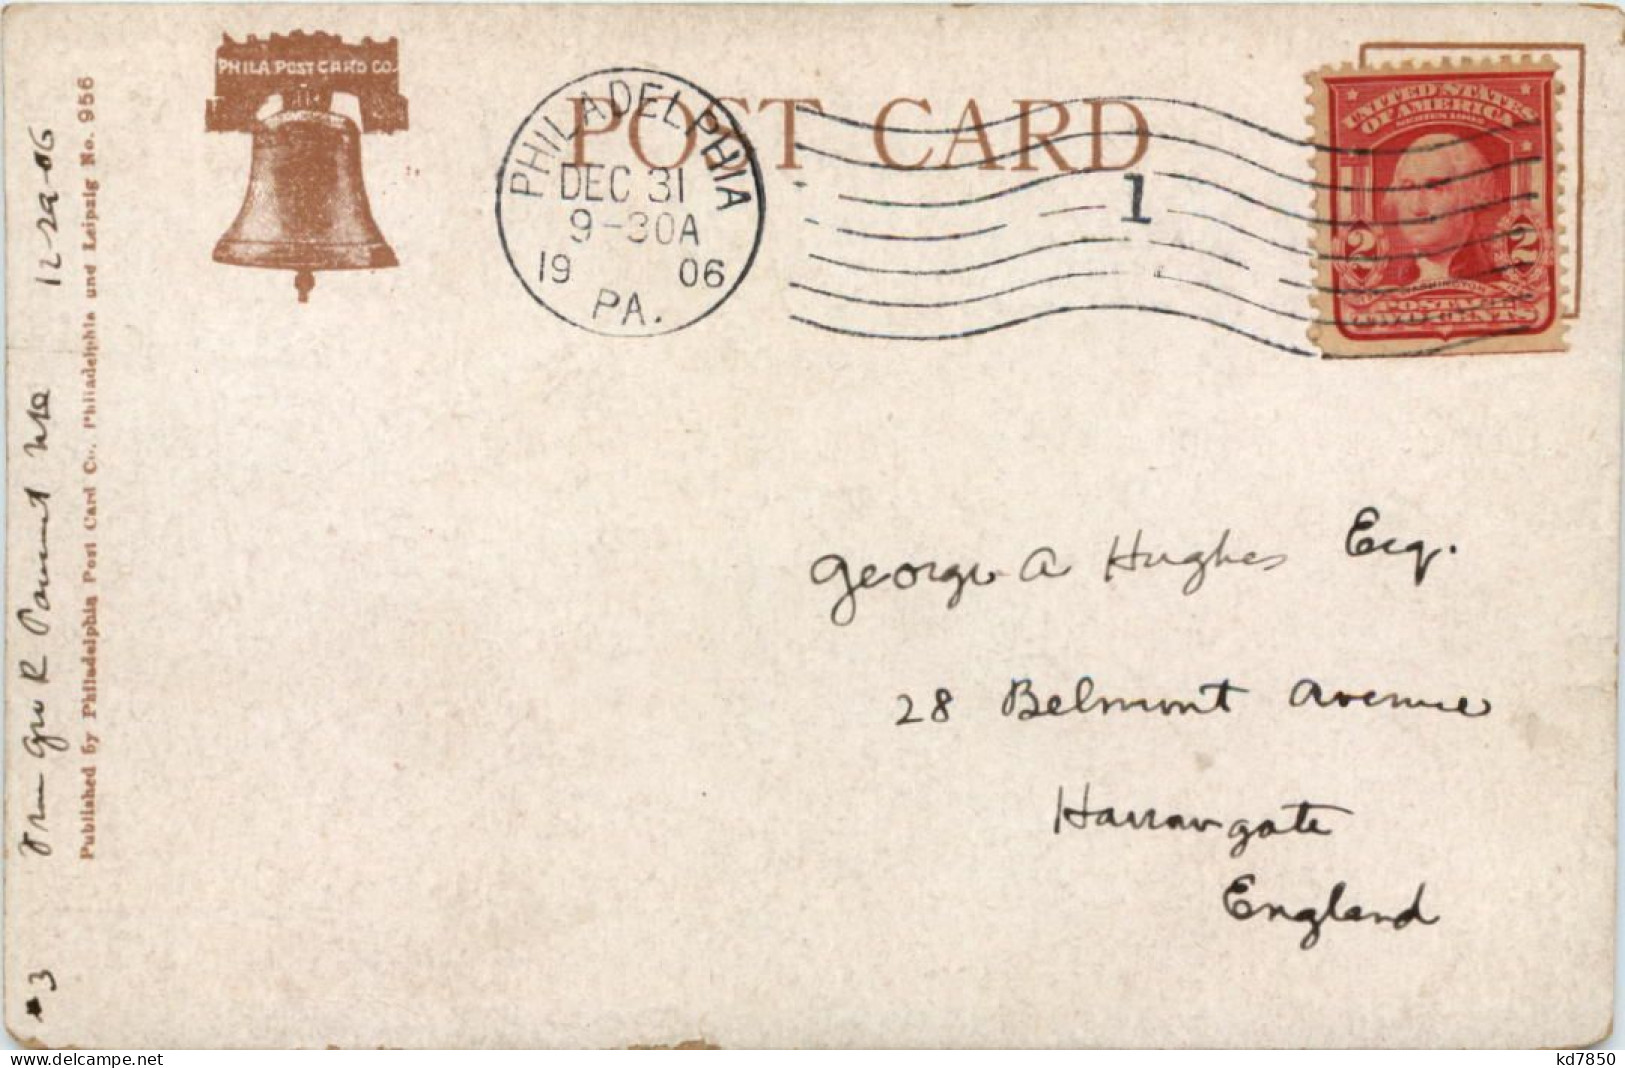 PHILA POST CARD CO.
POST CARD
PHILADELPHIA
DEC 31
9-30A
19 06
PA.
1
UNITED STATES
OF AMERICA
SERIES 1902
2 2
WASHINGTON
POSTAGE
TWO CENTS
George A Hughes Esq.
28 Belmont Avenue
Harrowgate
England
#3 From Geo R 12-29-06
Published by Philadelphia Post Card Co., Philadelphia und Leipzig No. 956
delcampe.net
kd7850